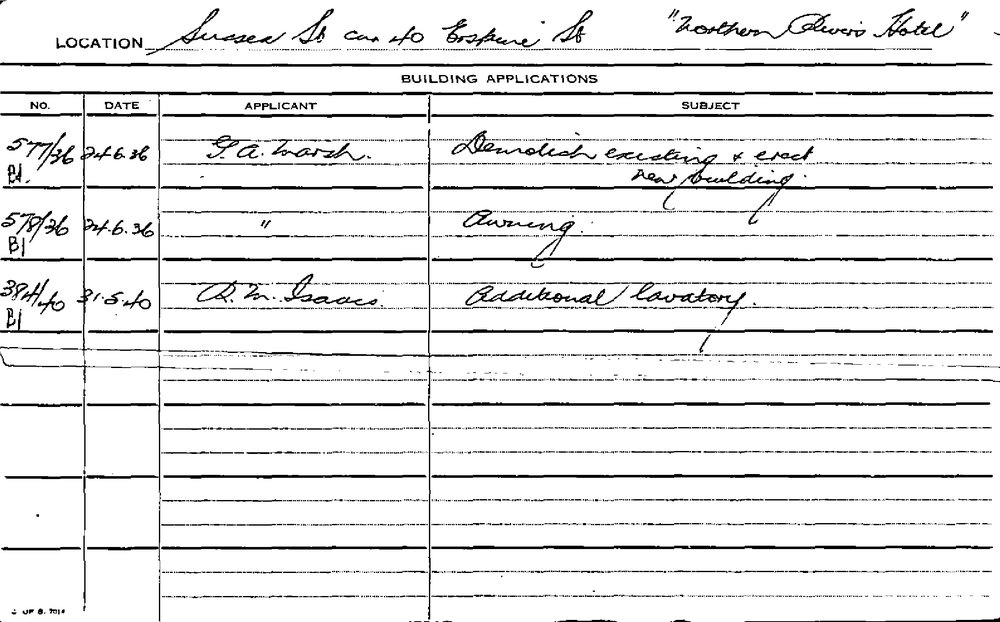 LOCATION Sussex St cnr 40 Erskine St "Northern Rivers Hotel"
BUILDING APPLICATIONS
NO. DATE APPLICANT SUBJECT
577/36 24.6.36 G. A. Marsh. Demolish existing & erect
B1. new building.
578/36 24.6.36 " Awning.
B1
384/40 31.5.40 R. M. Isaacs. Additional lavatory.
B1